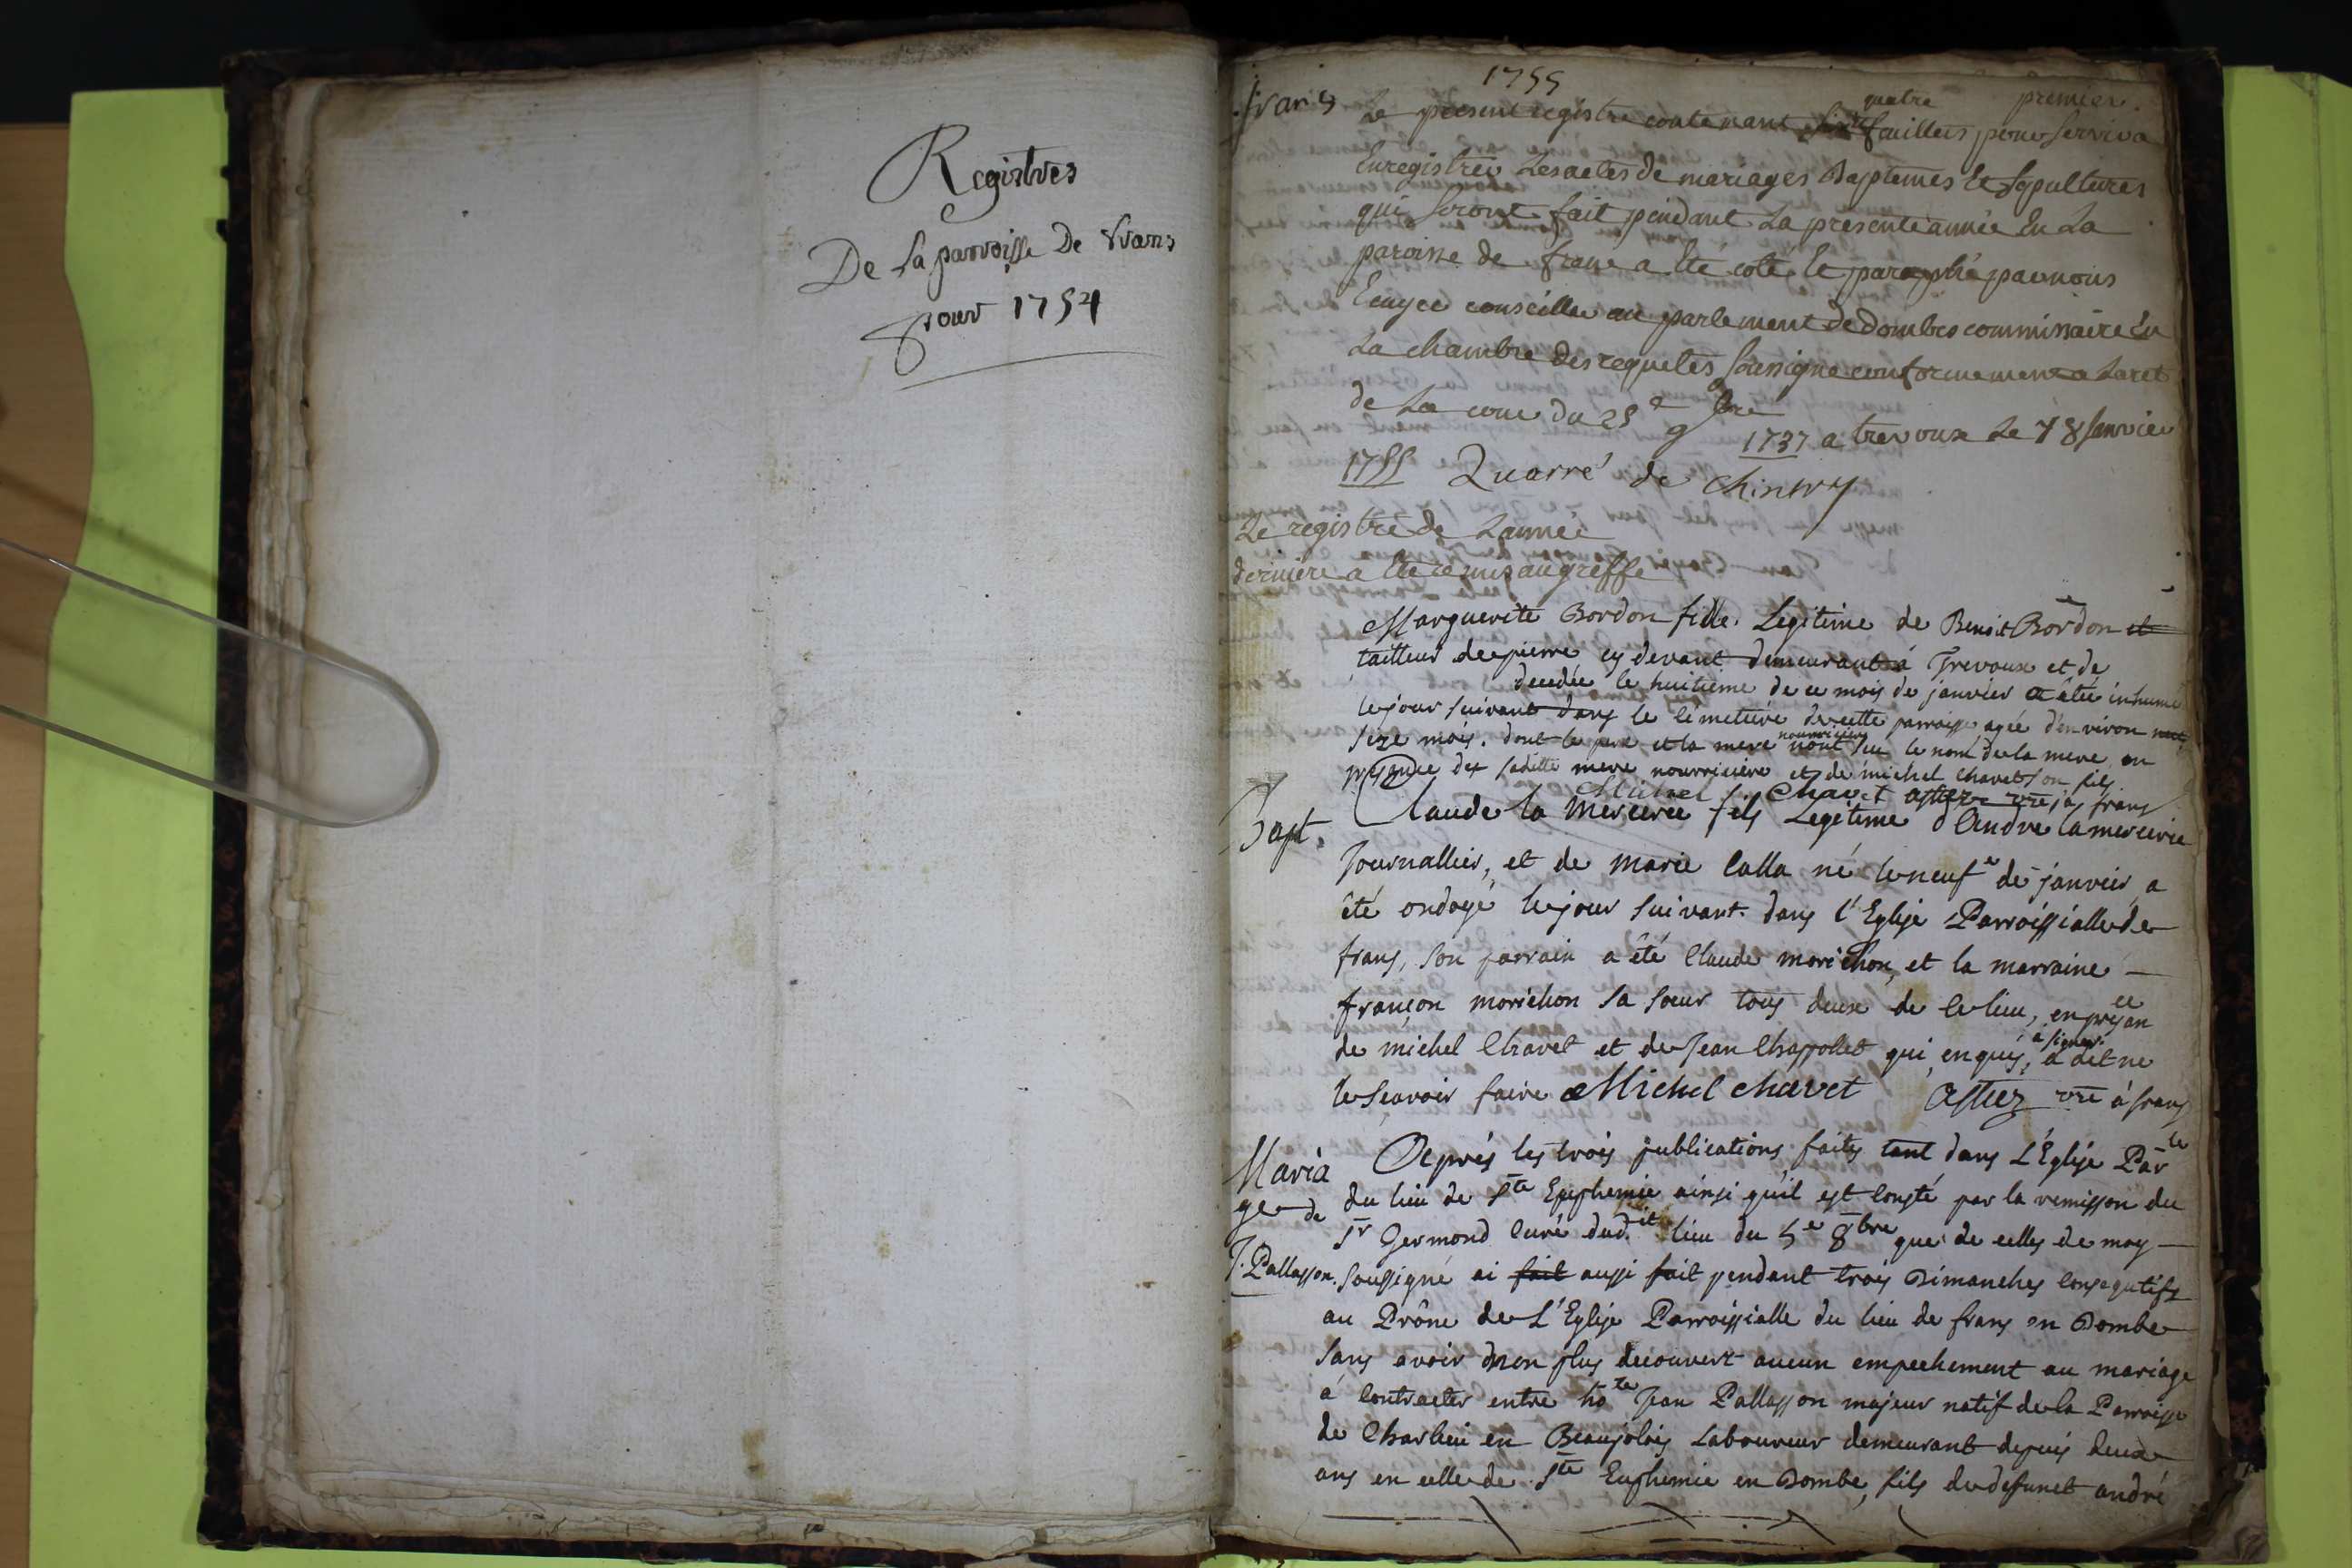 Registres
De La parroisse De frans
pour 1754
1755
frans
premier.
quatre
Le present registre contenant feuillets pour servir a
Enregistrer Les actes de mariages Baptemes Et Sepultures
qui seront fait pendant La presente année En La
paroisse de frans a Eté coté Et paraphé par nous
Ecuyer conseiller au parlement de dombes commissaire En
La chambre des requetes soussigné conformement a Laret
de La cour du 25e 9bre 1737 a trevoux Le 8 Janvier
1755 Quarré de Chintry
Le registre de Lannée
derniere a Eté remis au greffe
Marguerite Bordon fille Legitime de Benoit Bordon et
tailleur de pierre cy devant demeurant à Trevoux et de
decedée le huitieme de ce mois de janvier a étée inhumé
le jour suivant dans le cimetiere de cette parroisse agée d'environ
seze mois. dont le pere et la mere nourriciers n'ont sue le nom de la mere en
presence de ladette mere nourriciere et de michel chavet son fils
Michel Chavet astier vre à frans
Bapt.
Claude la Mercerie fils Legitime d'André lamercerie
Journallier, et de marie Calla né le neufe de janvier a
été ondoyé le jour suivant dans l'Eglise Parroissialle de
frans, son parrain a été Claude morichon, et la marraine
françon morichon sa soeur tous deux de ce lieu, en presance
de michel Chavet et de Jean Chapollet qui enquis à signer a dit ne
le scavoir faire Michel chavet Astier vre à frans
Maria
ge de
J. Pallasson.
Après les trois publications faites tant dans L'Eglise Parle
du lieu de Ste Euphemie ainsi qu'il est consté par la remisson du
Sr Germond curé dudit lieu du 5e 8bre que de celles de moy
soussigné ai fait aussi fait pendant trois Dimanches consequtifs
au Prône de L'Eglise Parroissialle du lieu de frans en Dombe
sans avoir non plus decouvert aucun empechement au mariage
à contracter entre hōte Jean Pallasson majeur natif de la Parroisse
de Charlieu en Beaujolois Laboureur demeurant depuis deux
ans en celle de Ste Euphemie en Dombe, fils de defunct andré